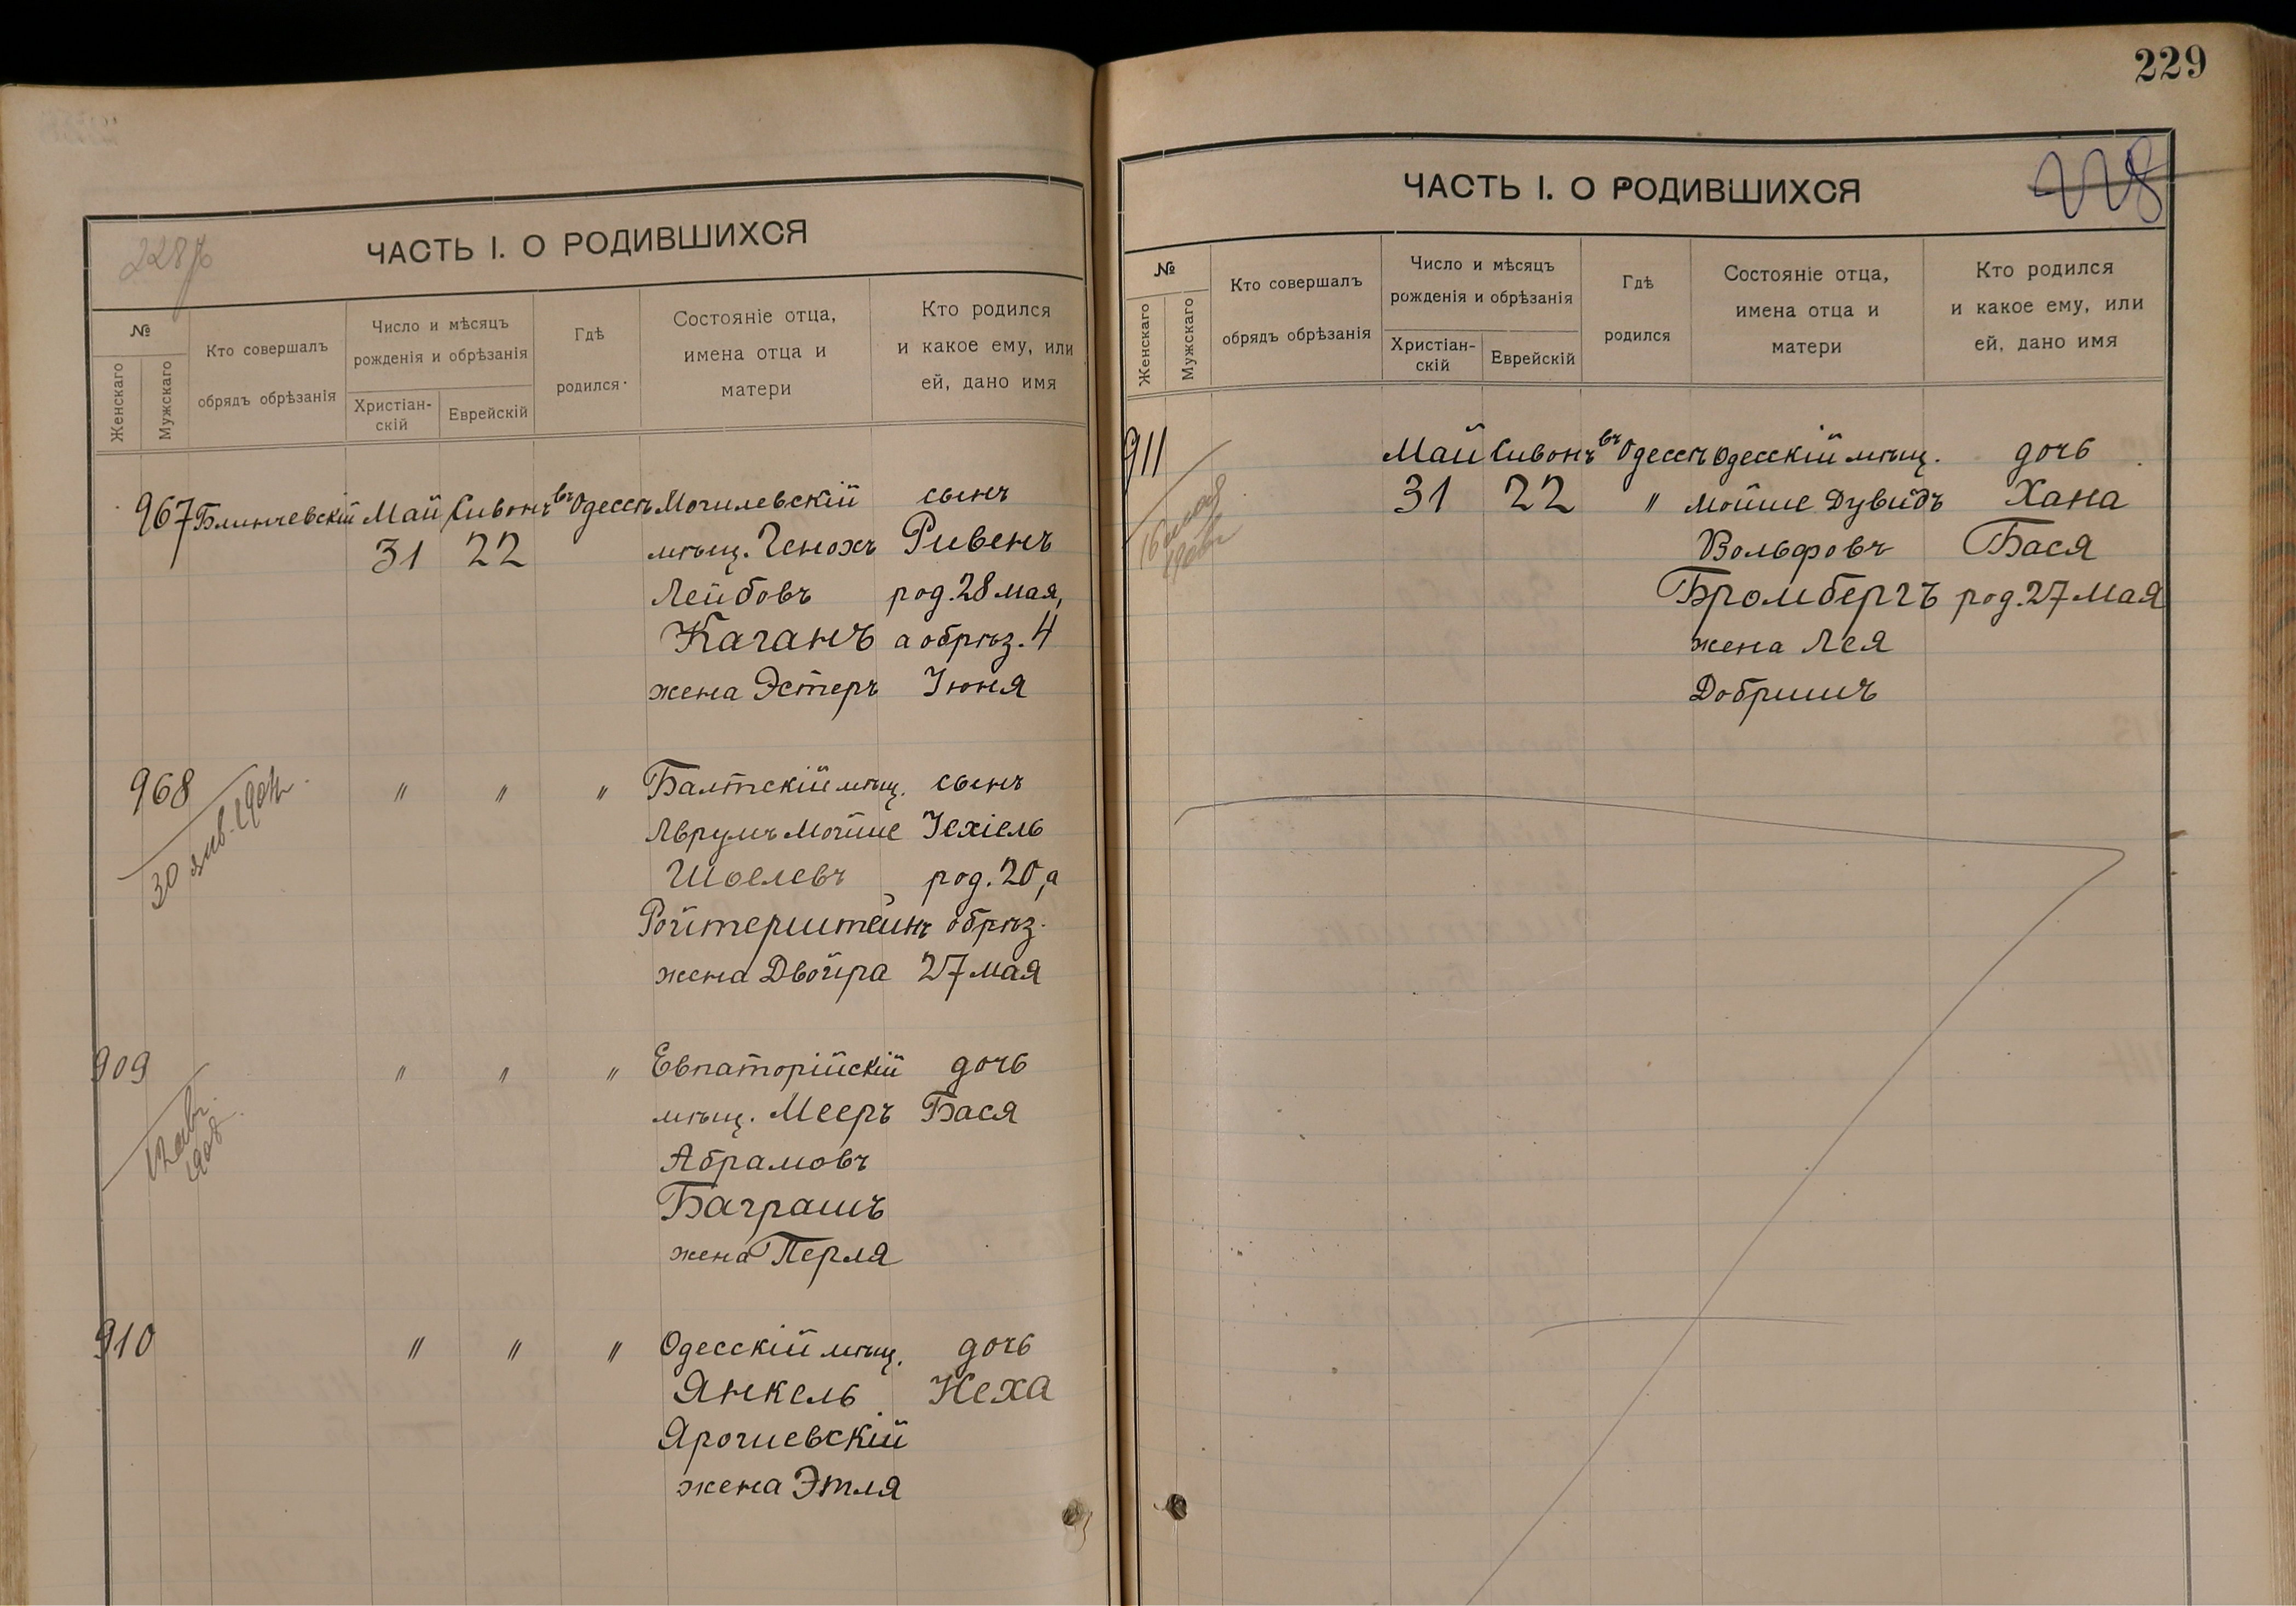 228 об
ЧАСТЬ I. О РОДИВШИХСЯ
№
Женскаго
Мужскаго
Кто совершалъ
обрядъ обрѣзанія
Число и мѣсяцъ
рожденія и обрѣзанія
Христіан-
скій
Еврейскій
Гдѣ
родился
Состояніе отца,
имена отца и
матери
Кто родился
и какое ему, или
ей, дано имя
967 Блинчевскій Май Сивонъ въ Одессѣ Могилевскій сынъ
31 22 мѣщ. Генохъ Рувенъ
Лейбовъ род. 28 мая,
Каганъ а обрѣз. 4
жена Эстеръ Іюня
968 " " " Балтскій мѣщ. сынъ
30 янв. Аврумъ Мойше Іехіель
Шоелевъ род. 20, а
Ройтерштейнъ обрѣз.
жена Двойра 27 мая
909 " " " Евпаторійскій дочь
мѣщ. Мееръ Бася
12 авг.
1908
Абрамовъ
Баграшъ
жена Перля
910 " " " Одесскій мѣщ. дочь
Янкель Неха
Ярочевскій
жена Этля
229
228
ЧАСТЬ I. О РОДИВШИХСЯ
№
Женскаго
Мужскаго
Кто совершалъ
обрядъ обрѣзанія
Число и мѣсяцъ
рожденія и обрѣзанія
Христіан-
скій
Еврейскій
Гдѣ
родился
Состояніе отца,
имена отца и
матери
Кто родился
и какое ему, или
ей, дано имя
911 Май Сивонъ въ Одессѣ Одесскій мѣщ. дочь
31 22 " Мойше Дувидъ Хана
Вольфовъ Бася
Бромбергъ род. 27 мая
жена Лея
Добришъ